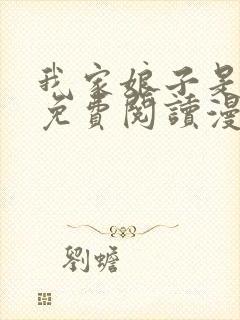 我家娘子是
免費閱讀漫
劉蟾